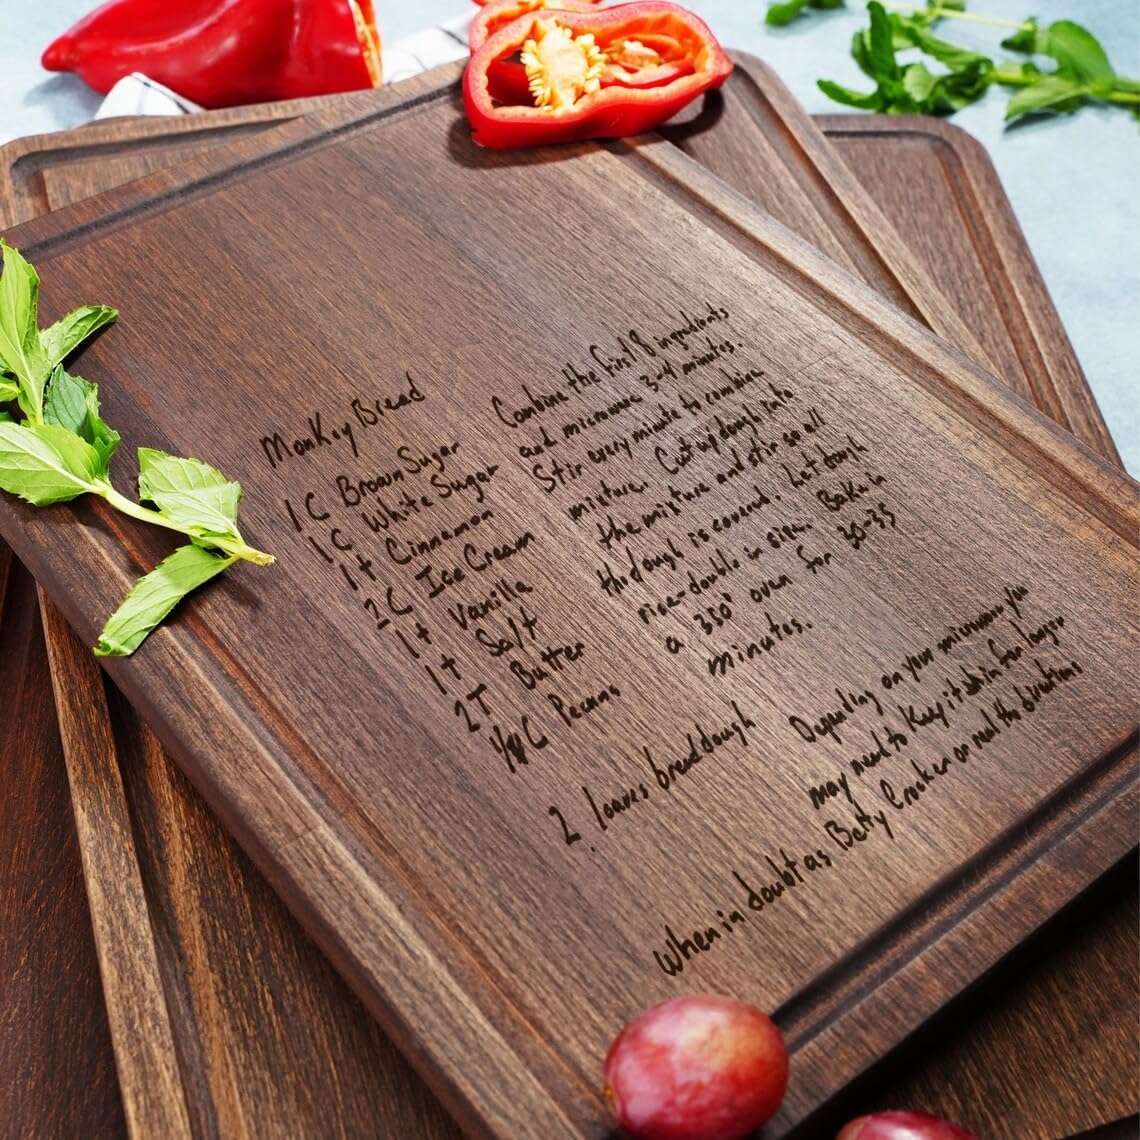 Monkey Bread
1 C Brown Sugar
1 C White Sugar
1 t Cinnamon
2 C Ice Cream
1 t Vanilla
1 t Salt
2 T Butter
C Pecans
2 loaves bread dough
Combine the first 8 ingredients
and microwave 3-4 minutes.
Stir every minute to combine
mixture. Cut up dough into
the mixture and stir so all
the dough is covered. Let dough
rise-double in size. Bake in
a 350° oven for 30-35
minutes.
Depending on your microwave you
may need to keep it in for longer
When in doubt as Betty Crocker or read the directions